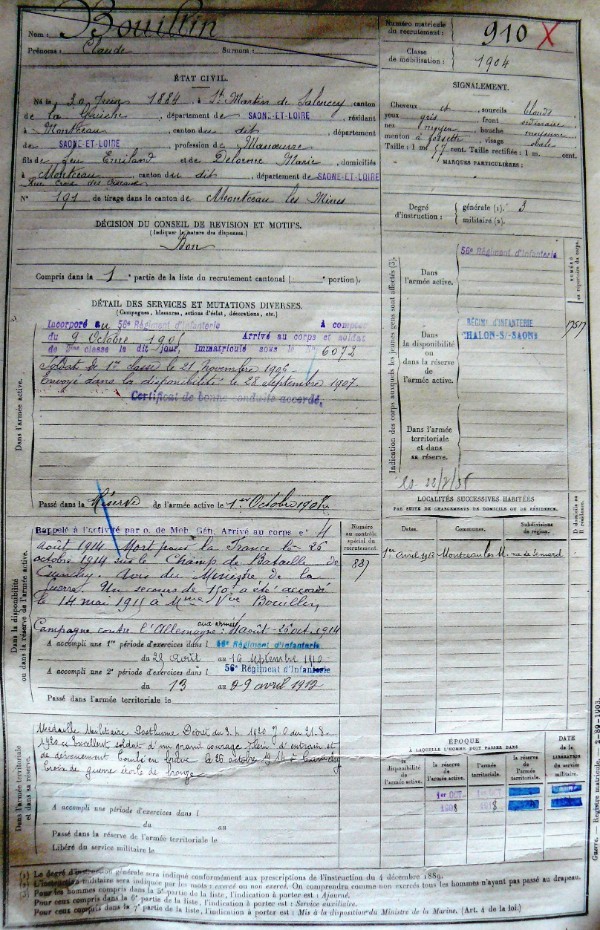 Nom : Bouillin
Prénoms : Claude Surnom :
Numéro matricule du recrutement : 910 X
Classe de mobilisation : 1904
ÉTAT CIVIL.
Né le 30 1884, à St Martin de Salencey, canton
de la Guiche, département de SAONE-ET-LOIRE, résidant
à Montceau, canton du dit, département
de SAONE-ET-LOIRE, profession de Manœuvre
fils de feu Emiland et de Delorme Marie, domiciliés
à Montceau, canton du dit, département de SAONE-ET-LOIRE
N° 191 de tirage dans le canton de Montceau les Mines
SIGNALEMENT.
Cheveux et sourcils blonds
yeux gris, front ordinaire
nez moyen, bouche moyenne
menton à fossette, visage ovale
Taille : 1 m. 57 cent. Taille rectifiée : 1 m. cent.
MARQUES PARTICULIÈRES :
Degré d'instruction : générale (1). 3
militaire (2).
DÉCISION DU CONSEIL DE REVISION ET MOTIFS.
(Indiquer la nature des dispenses.)
Bon
Compris dans la 1 e partie de la liste du recrutement cantonal ( e portion).
DÉTAIL DES SERVICES ET MUTATIONS DIVERSES.
(Campagnes, blessures, actions d'éclat, décorations, etc.)
Incorporé au 56e Régiment d'Infanterie À compter
du 9 Octobre 1905 Arrivé au corps et soldat
de 2ème classe le dit jour, Immatriculé sous le N° 6072
Soldat de 1re classe le 21 novembre 1906
Envoyé dans la disponibilité le 28 septembre 1907.
Certificat de bonne conduite accordé,
Dans l'armée active.
Passé dans la Réserve de l'armée active le 1er Octobre 1908
Indication des corps auxquels les jeunes gens sont affectés (3).
Dans l'armée active. 56e Régiment d'Infanterie
Dans la disponibilité ou dans la réserve de l'armée active. RÉGIMt D'INFANTERIE
CHALON-S/-SAONE
Dans l'armée territoriale et dans sa réserve.
LOCALITÉS SUCCESSIVES HABITÉES
PAR SUITE DE CHANGEMENTS DE DOMICILE OU DE RÉSIDENCE.
Dates. Communes. Subdivisions de région. D domicile ou R résidence.
1er Avril 1912 Montceau les M.
Rappelé à l'activité par o. de Mob. Gén. Arrivé au corps le 4
août 1914 Mort pour la France le 26
octobre 1914 sur le Champ de Bataille de
Cuinchy. Avis du Ministre de la
Guerre. Un secours de 150f a été accordé
le 14 mai 1915 à Mme Vve Bouillin
Campagne contre l'Allemagne : aux armées 4 août - 26 oct. 1914
Numéro au contrôle spécial du recrutement
887
Dans la disponibilité ou dans la réserve de l'armée active.
A accompli une 1re période d'exercices dans l 56e Régiment d'Infanterie
du 24 Août au 15 septembre 1910
A accompli une 2e période d'exercices dans l 56e Régiment d'Infanterie
Passé dans l'armée territoriale le
Dans l'armée territoriale et dans sa réserve.
Médaille Militaire Posthume
Excellent soldat d'un grand courage plein d'entrain et
de dévouement. Tombé en brave le 26 octobre
Croix de guerre étoile de bronze
A accompli une période d'exercices dans l
du au
Passé dans la réserve de l'armée territoriale le
Libéré du service militaire le
ÉPOQUE
À LAQUELLE L'HOMME DOIT PASSER DANS
la disponibilité de l'armée active. la réserve de l'armée active. l'armée territoriale. la réserve de l'armée territoriale.
DATE DE LA LIBÉRATION DU SERVICE militaire.
1er OCT.
1908
(1) Le degré d'instruction générale sera indiqué conformément aux prescriptions de l'instruction du 4 décembre 1889.
(2) L'instruction militaire sera indiquée par les mots : exercé ou non exercé. On comprendra comme non exercés tous les hommes n'ayant pas passé au drapeau.
(3) Pour les hommes compris dans la 5e partie de la liste, l'indication à porter est : Ajourné.
Pour ceux compris dans la 6e partie de la liste, l'indication à porter est : Service auxiliaire.
Pour ceux compris dans la 7e partie de la liste, l'indication à porter est : Mis à la disposition du Ministre de la Marine. (Art. 4 de la loi.)